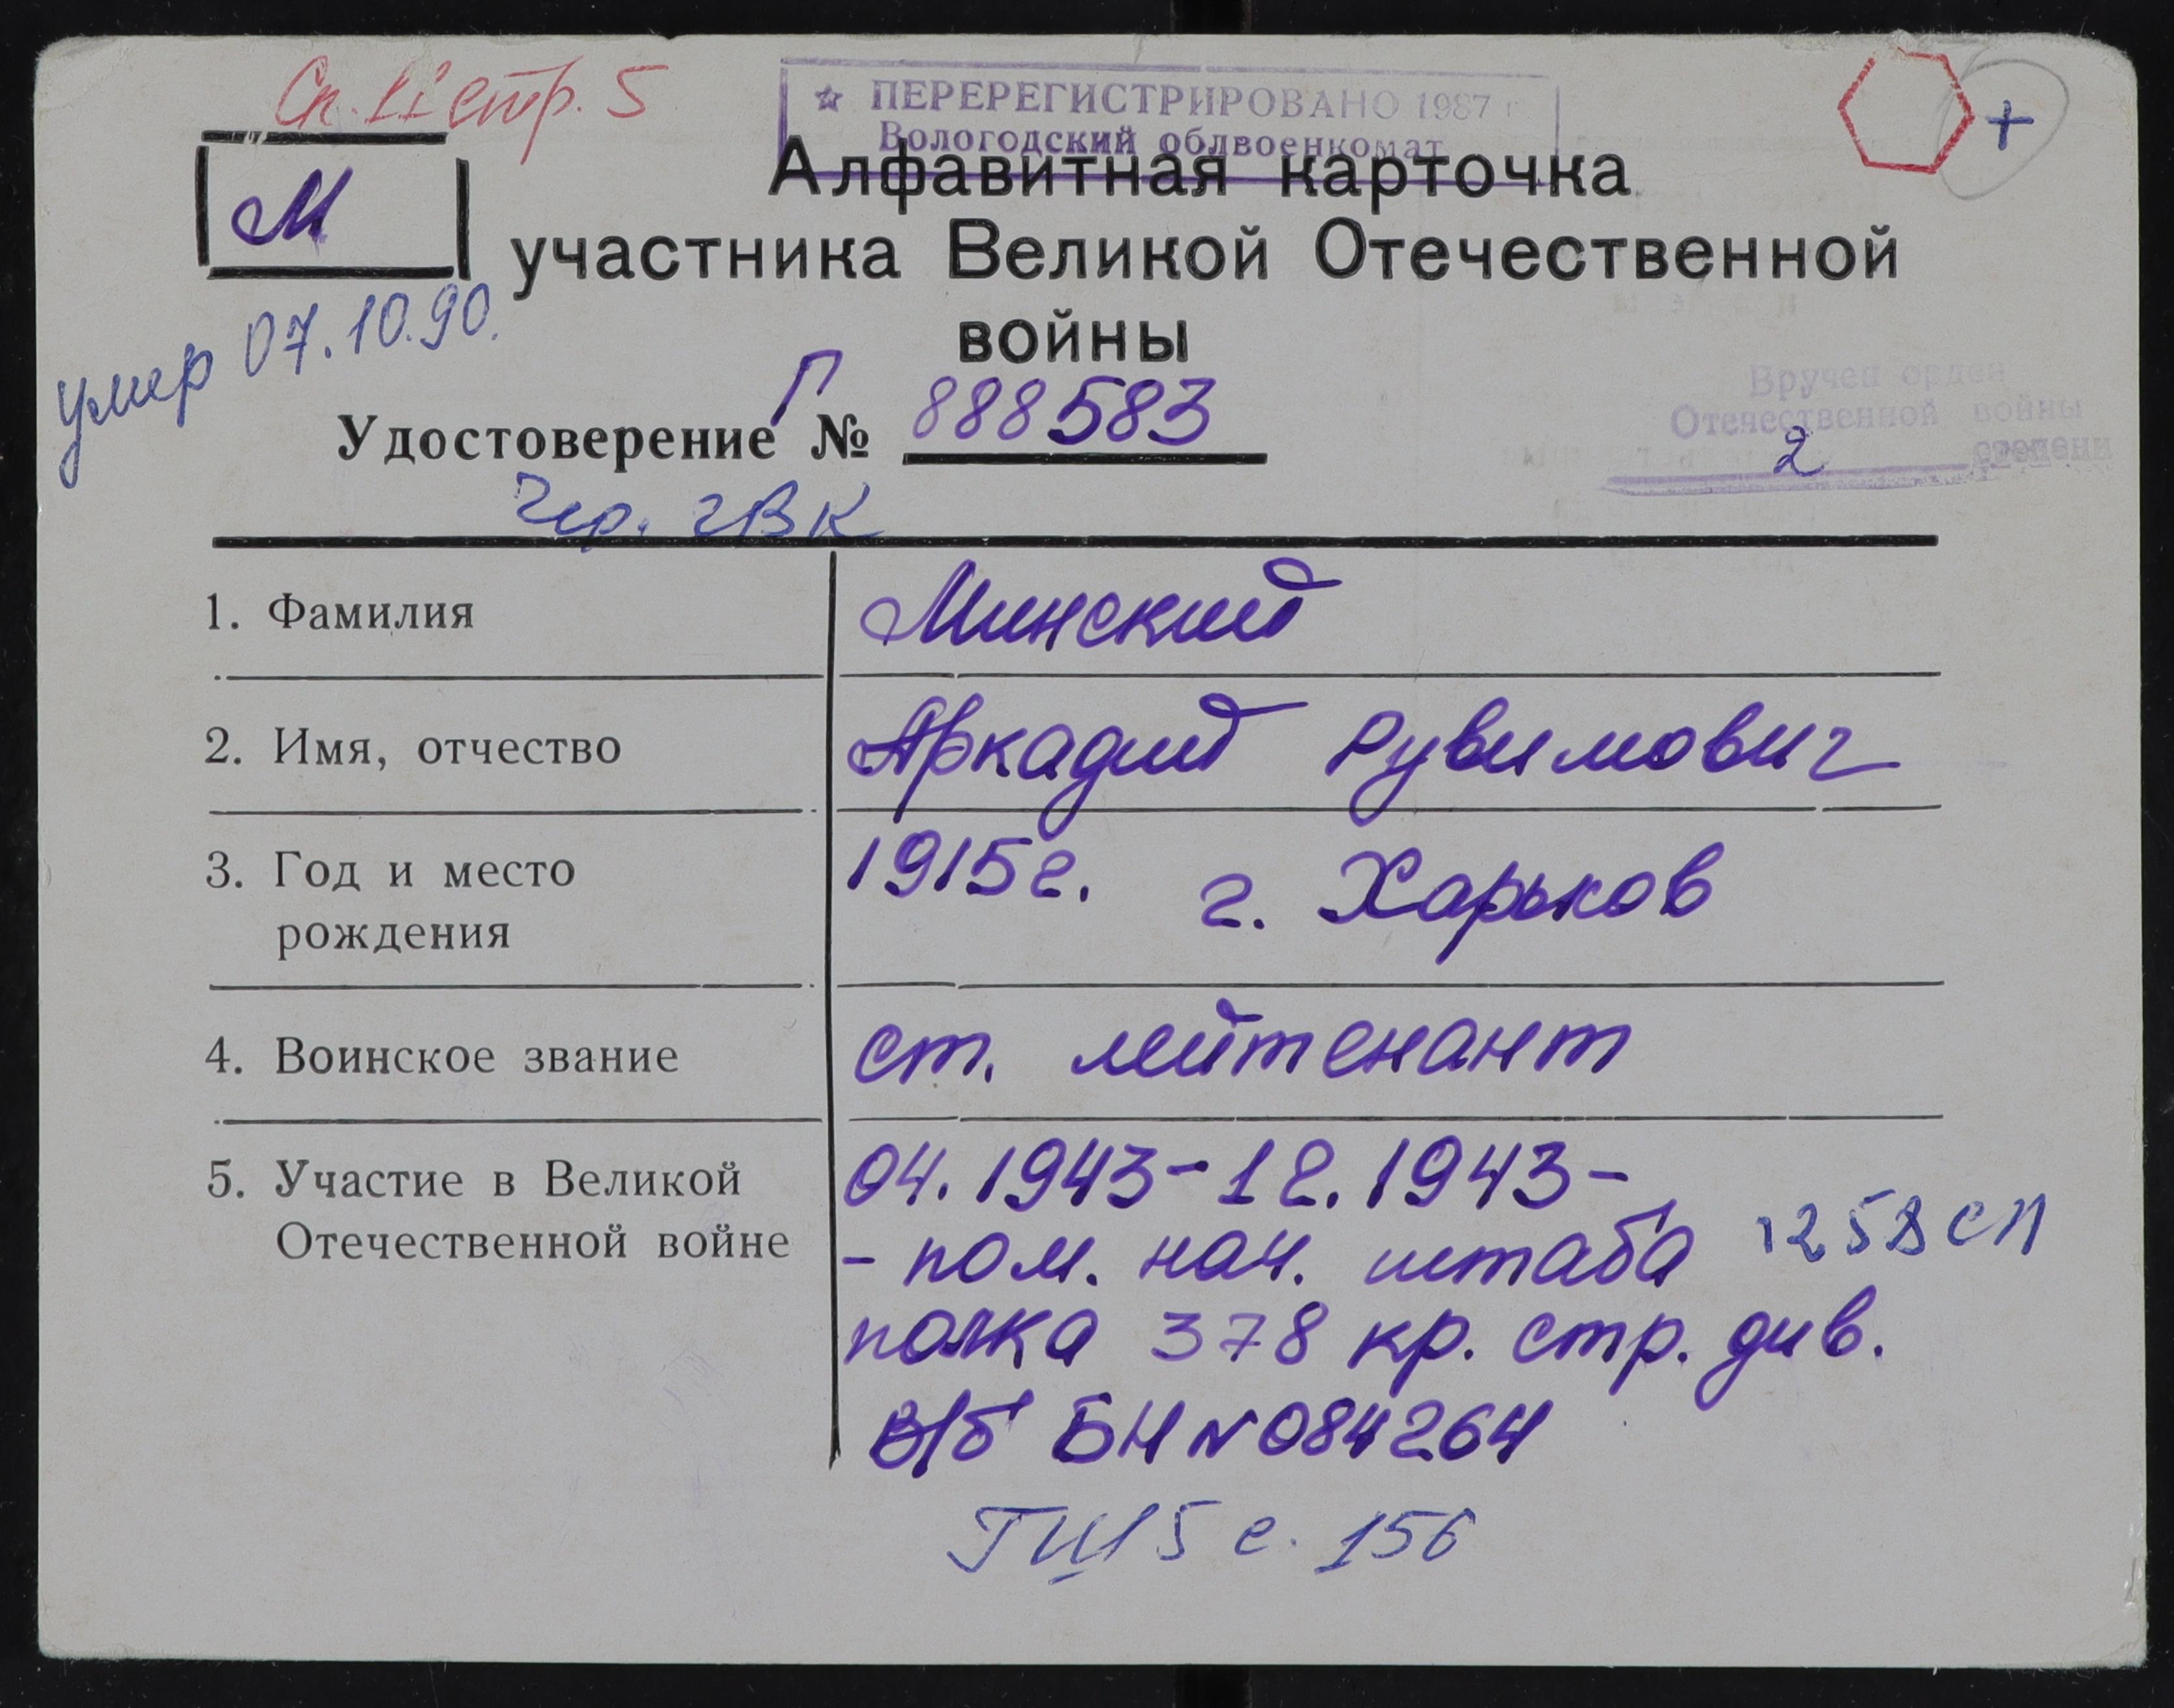 Сп. 11 стр. 5
☆ ПЕРЕРЕГИСТРИРОВАНО 1987 г
Вологодский облвоенкомат
+
М
Алфавитная карточка
участника Великой Отечественной
войны
умер 07.10.90.
Удостоверение Г № 888583
Чер. ГВК
Вручен орден
Отечественной войны
2 степени
1. Фамилия
Минский
2. Имя, отчество
Аркадий Рувимович
3. Год и место
рождения
1915г. г. Харьков
4. Воинское звание
ст. лейтенант
5. Участие в Великой
Отечественной войне
04.1943-12.1943-
- пом. нач. штаба 1258 СП
полка 378 кр. стр. див.
В/б БН N 084264
15 с. 156